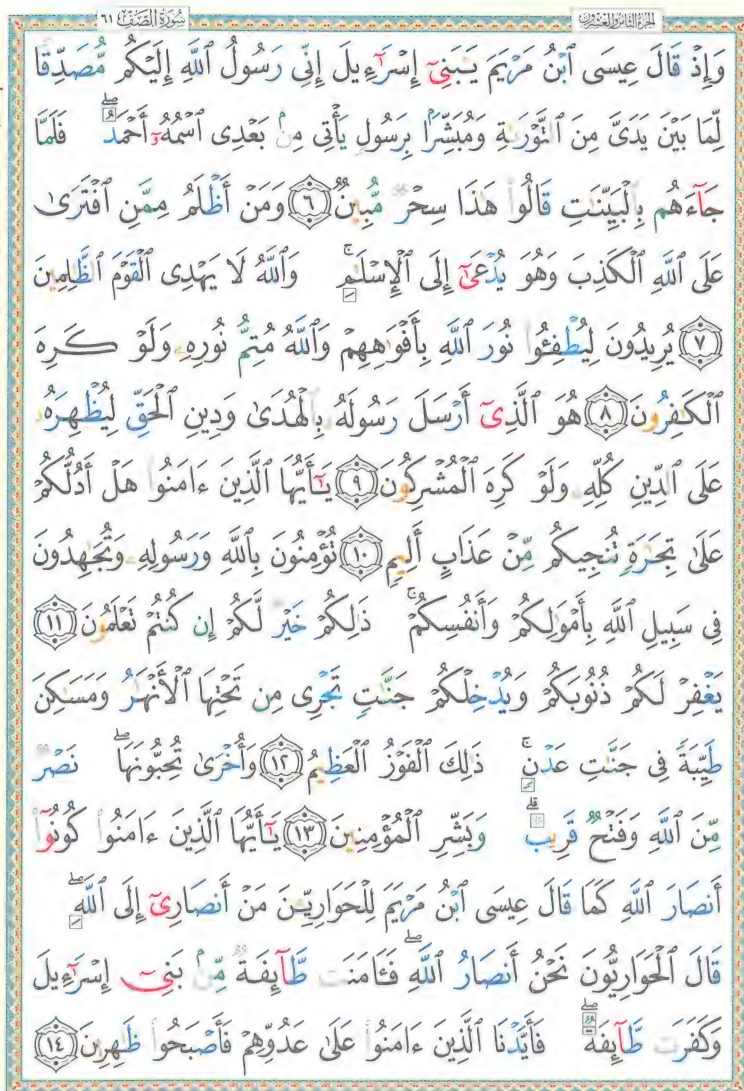 الجزء الثامن والعشرون سُورَةُ الصَّفِّ ٦١
وَإِذْ قَالَ عِيسَى ٱبْنُ مَرْيَمَ يَـٰبَنِىٓ إِسْرَٰٓءِيلَ إِنِّى رَسُولُ ٱللَّهِ إِلَيْكُم مُّصَدِّقًا
لِّمَا بَيْنَ يَدَىَّ مِنَ ٱلتَّوْرَىٰةِ وَمُبَشِّرًۢا بِرَسُولٍ يَأْتِى مِنۢ بَعْدِى ٱسْمُهُۥٓ أَحْمَدُ ۖ فَلَمَّا
جَآءَهُم بِٱلْبَيِّنَـٰتِ قَالُوا۟ هَـٰذَا سِحْرٌ مُّبِينٌ ۝٦ وَمَنْ أَظْلَمُ مِمَّنِ ٱفْتَرَىٰ
عَلَى ٱللَّهِ ٱلْكَذِبَ وَهُوَ يُدْعَىٰٓ إِلَى ٱلْإِسْلَـٰمِ ۚ وَٱللَّهُ لَا يَهْدِى ٱلْقَوْمَ ٱلظَّـٰلِمِينَ
۝٧ يُرِيدُونَ لِيُطْفِـُٔوا۟ نُورَ ٱللَّهِ بِأَفْوَٰهِهِمْ وَٱللَّهُ مُتِمُّ نُورِهِۦ وَلَوْ كَرِهَ
ٱلْكَـٰفِرُونَ ۝٨ هُوَ ٱلَّذِىٓ أَرْسَلَ رَسُولَهُۥ بِٱلْهُدَىٰ وَدِينِ ٱلْحَقِّ لِيُظْهِرَهُۥ
عَلَى ٱلدِّينِ كُلِّهِۦ وَلَوْ كَرِهَ ٱلْمُشْرِكُونَ ۝٩ يَـٰٓأَيُّهَا ٱلَّذِينَ ءَامَنُوا۟ هَلْ أَدُلُّكُمْ
عَلَىٰ تِجَـٰرَةٍ تُنجِيكُم مِّنْ عَذَابٍ أَلِيمٍ ۝١٠ تُؤْمِنُونَ بِٱللَّهِ وَرَسُولِهِۦ وَتُجَـٰهِدُونَ
فِى سَبِيلِ ٱللَّهِ بِأَمْوَٰلِكُمْ وَأَنفُسِكُمْ ۚ ذَٰلِكُمْ خَيْرٌ لَّكُمْ إِن كُنتُمْ تَعْلَمُونَ ۝١١
يَغْفِرْ لَكُمْ ذُنُوبَكُمْ وَيُدْخِلْكُمْ جَنَّـٰتٍ تَجْرِى مِن تَحْتِهَا ٱلْأَنْهَـٰرُ وَمَسَـٰكِنَ
طَيِّبَةً فِى جَنَّـٰتِ عَدْنٍ ۚ ذَٰلِكَ ٱلْفَوْزُ ٱلْعَظِيمُ ۝١٢ وَأُخْرَىٰ تُحِبُّونَهَا ۖ نَصْرٌ
مِّنَ ٱللَّهِ وَفَتْحٌ قَرِيبٌ ۗ وَبَشِّرِ ٱلْمُؤْمِنِينَ ۝١٣ يَـٰٓأَيُّهَا ٱلَّذِينَ ءَامَنُوا۟ كُونُوٓا۟
أَنصَارَ ٱللَّهِ كَمَا قَالَ عِيسَى ٱبْنُ مَرْيَمَ لِلْحَوَارِيِّـۧنَ مَنْ أَنصَارِىٓ إِلَى ٱللَّهِ ۖ
قَالَ ٱلْحَوَارِيُّونَ نَحْنُ أَنصَارُ ٱللَّهِ ۖ فَـَٔامَنَت طَّآئِفَةٌ مِّنۢ بَنِىٓ إِسْرَٰٓءِيلَ
وَكَفَرَت طَّآئِفَةٌ ۖ فَأَيَّدْنَا ٱلَّذِينَ ءَامَنُوا۟ عَلَىٰ عَدُوِّهِمْ فَأَصْبَحُوا۟ ظَـٰهِرِينَ ۝١٤